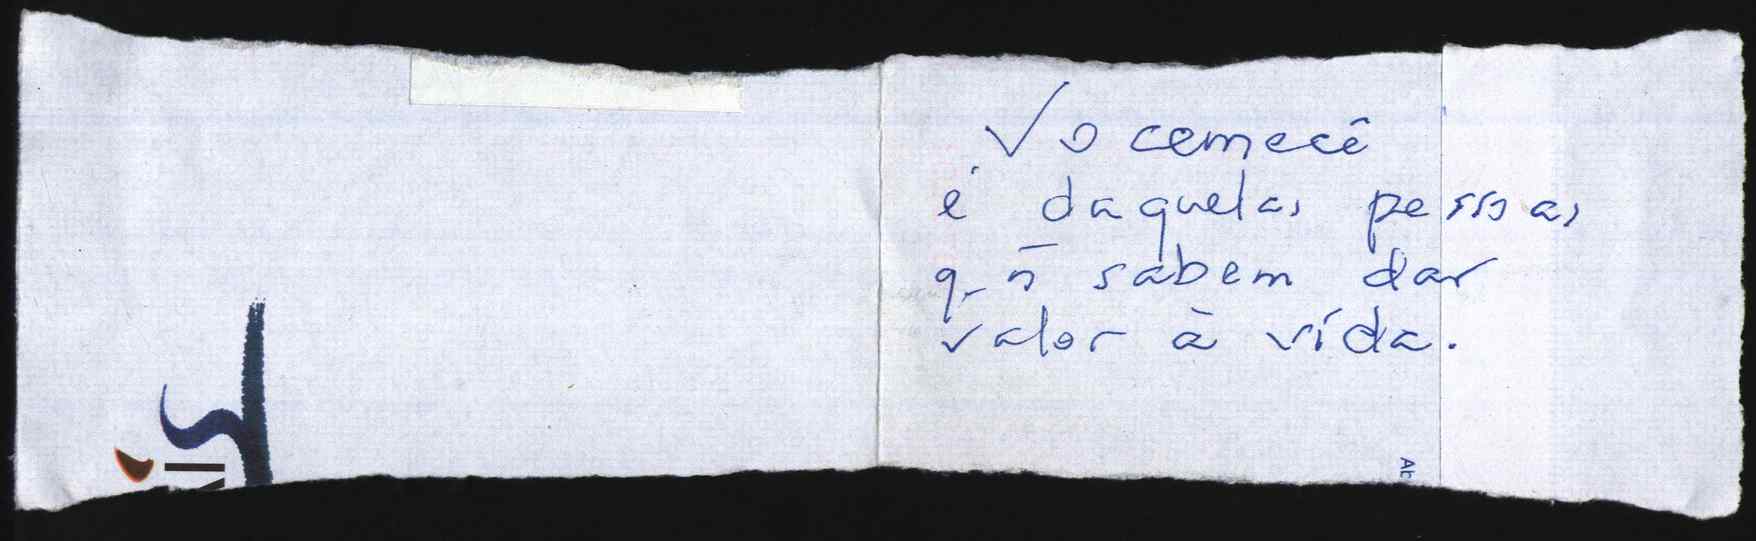 Vocemecê
é daquelas pessoas
q. ñ sabem dar
valor à vida.
Ab